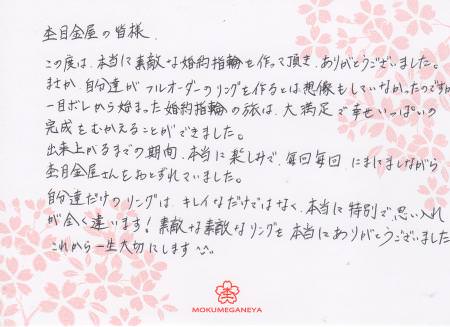 杢目金屋の皆様
この度は、本当に素敵な婚約指輪を作って頂き、ありがとうございました。
まさか、自分達がフルオーダーのリングを作るとは想像もしていなかったのですが
一目ボレから始まった婚約指輪の旅は、大満足で幸せいっぱいの
完成をむかえることができました。
出来上がるまでの期間、本当に楽しみで、毎回毎回、にまにましながら
杢目金屋さんをおとずれていました。
自分達だけのリングは、キレイなだけではなく、本当に特別で、思い入れ
が全く違います!素敵な素敵なリングを本当にありがとうございました
これから一生大切にします^^。
MOKUMEGANEYA